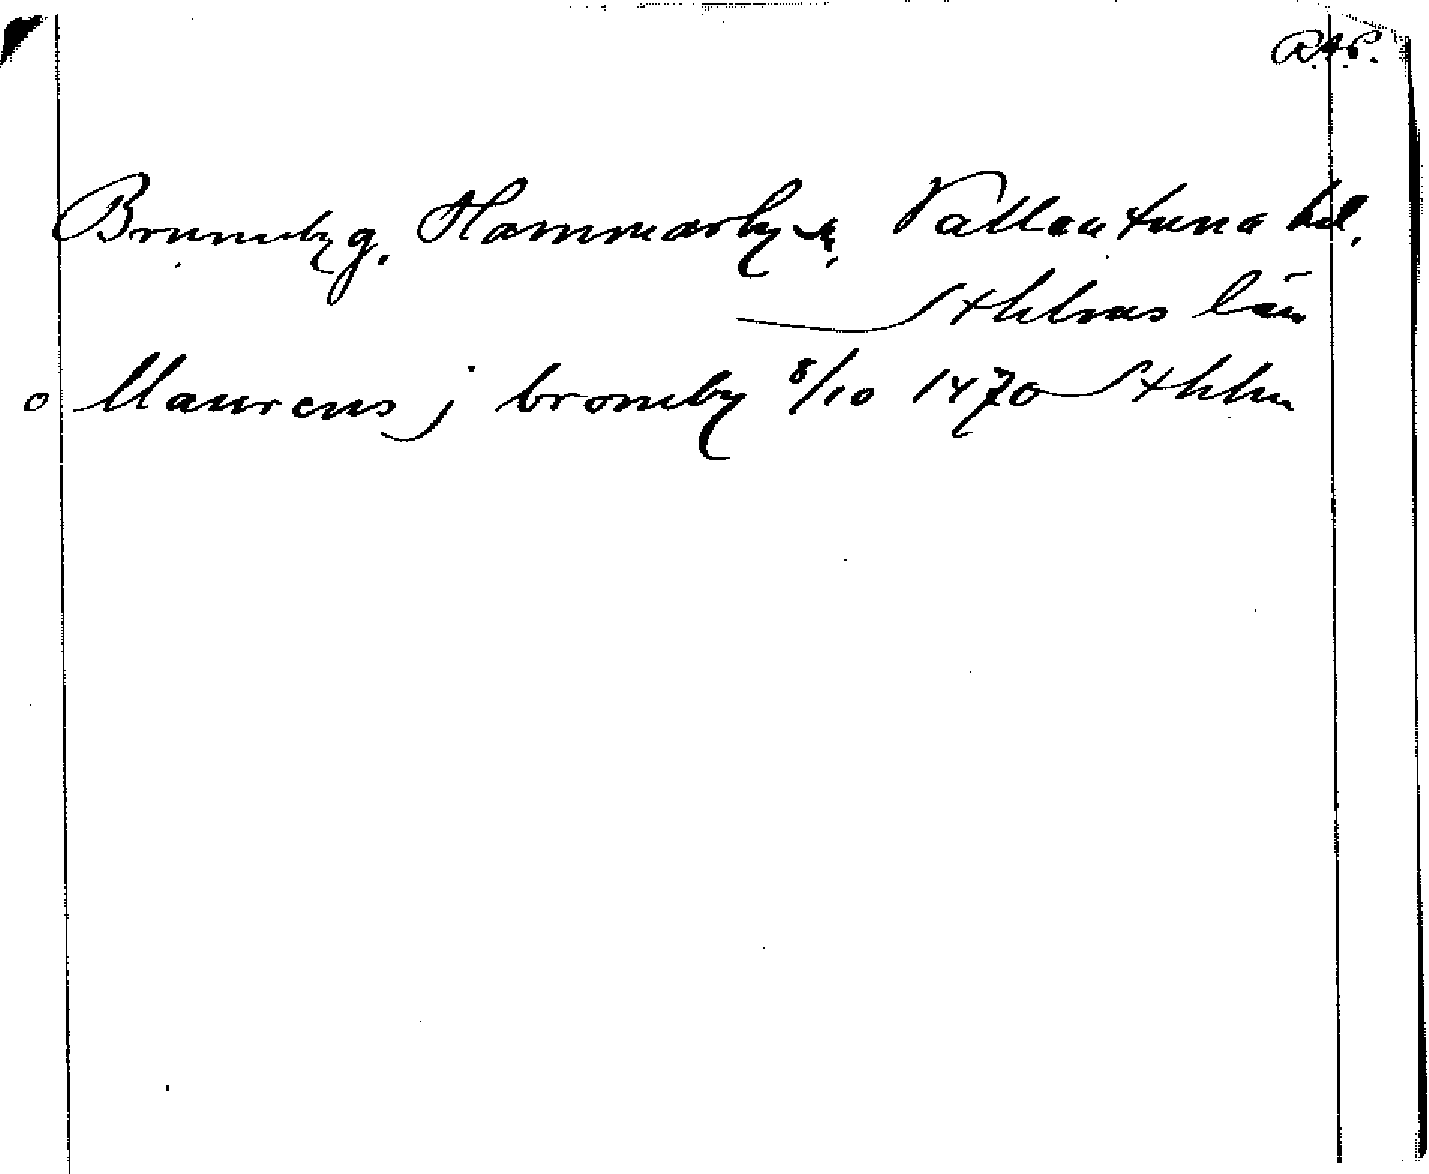 RAP.
Brunnby g. Hammarby sn, Vallentuna hd,
Sthlms län
o Laurens j bromby 8/10 1470 Sthlm